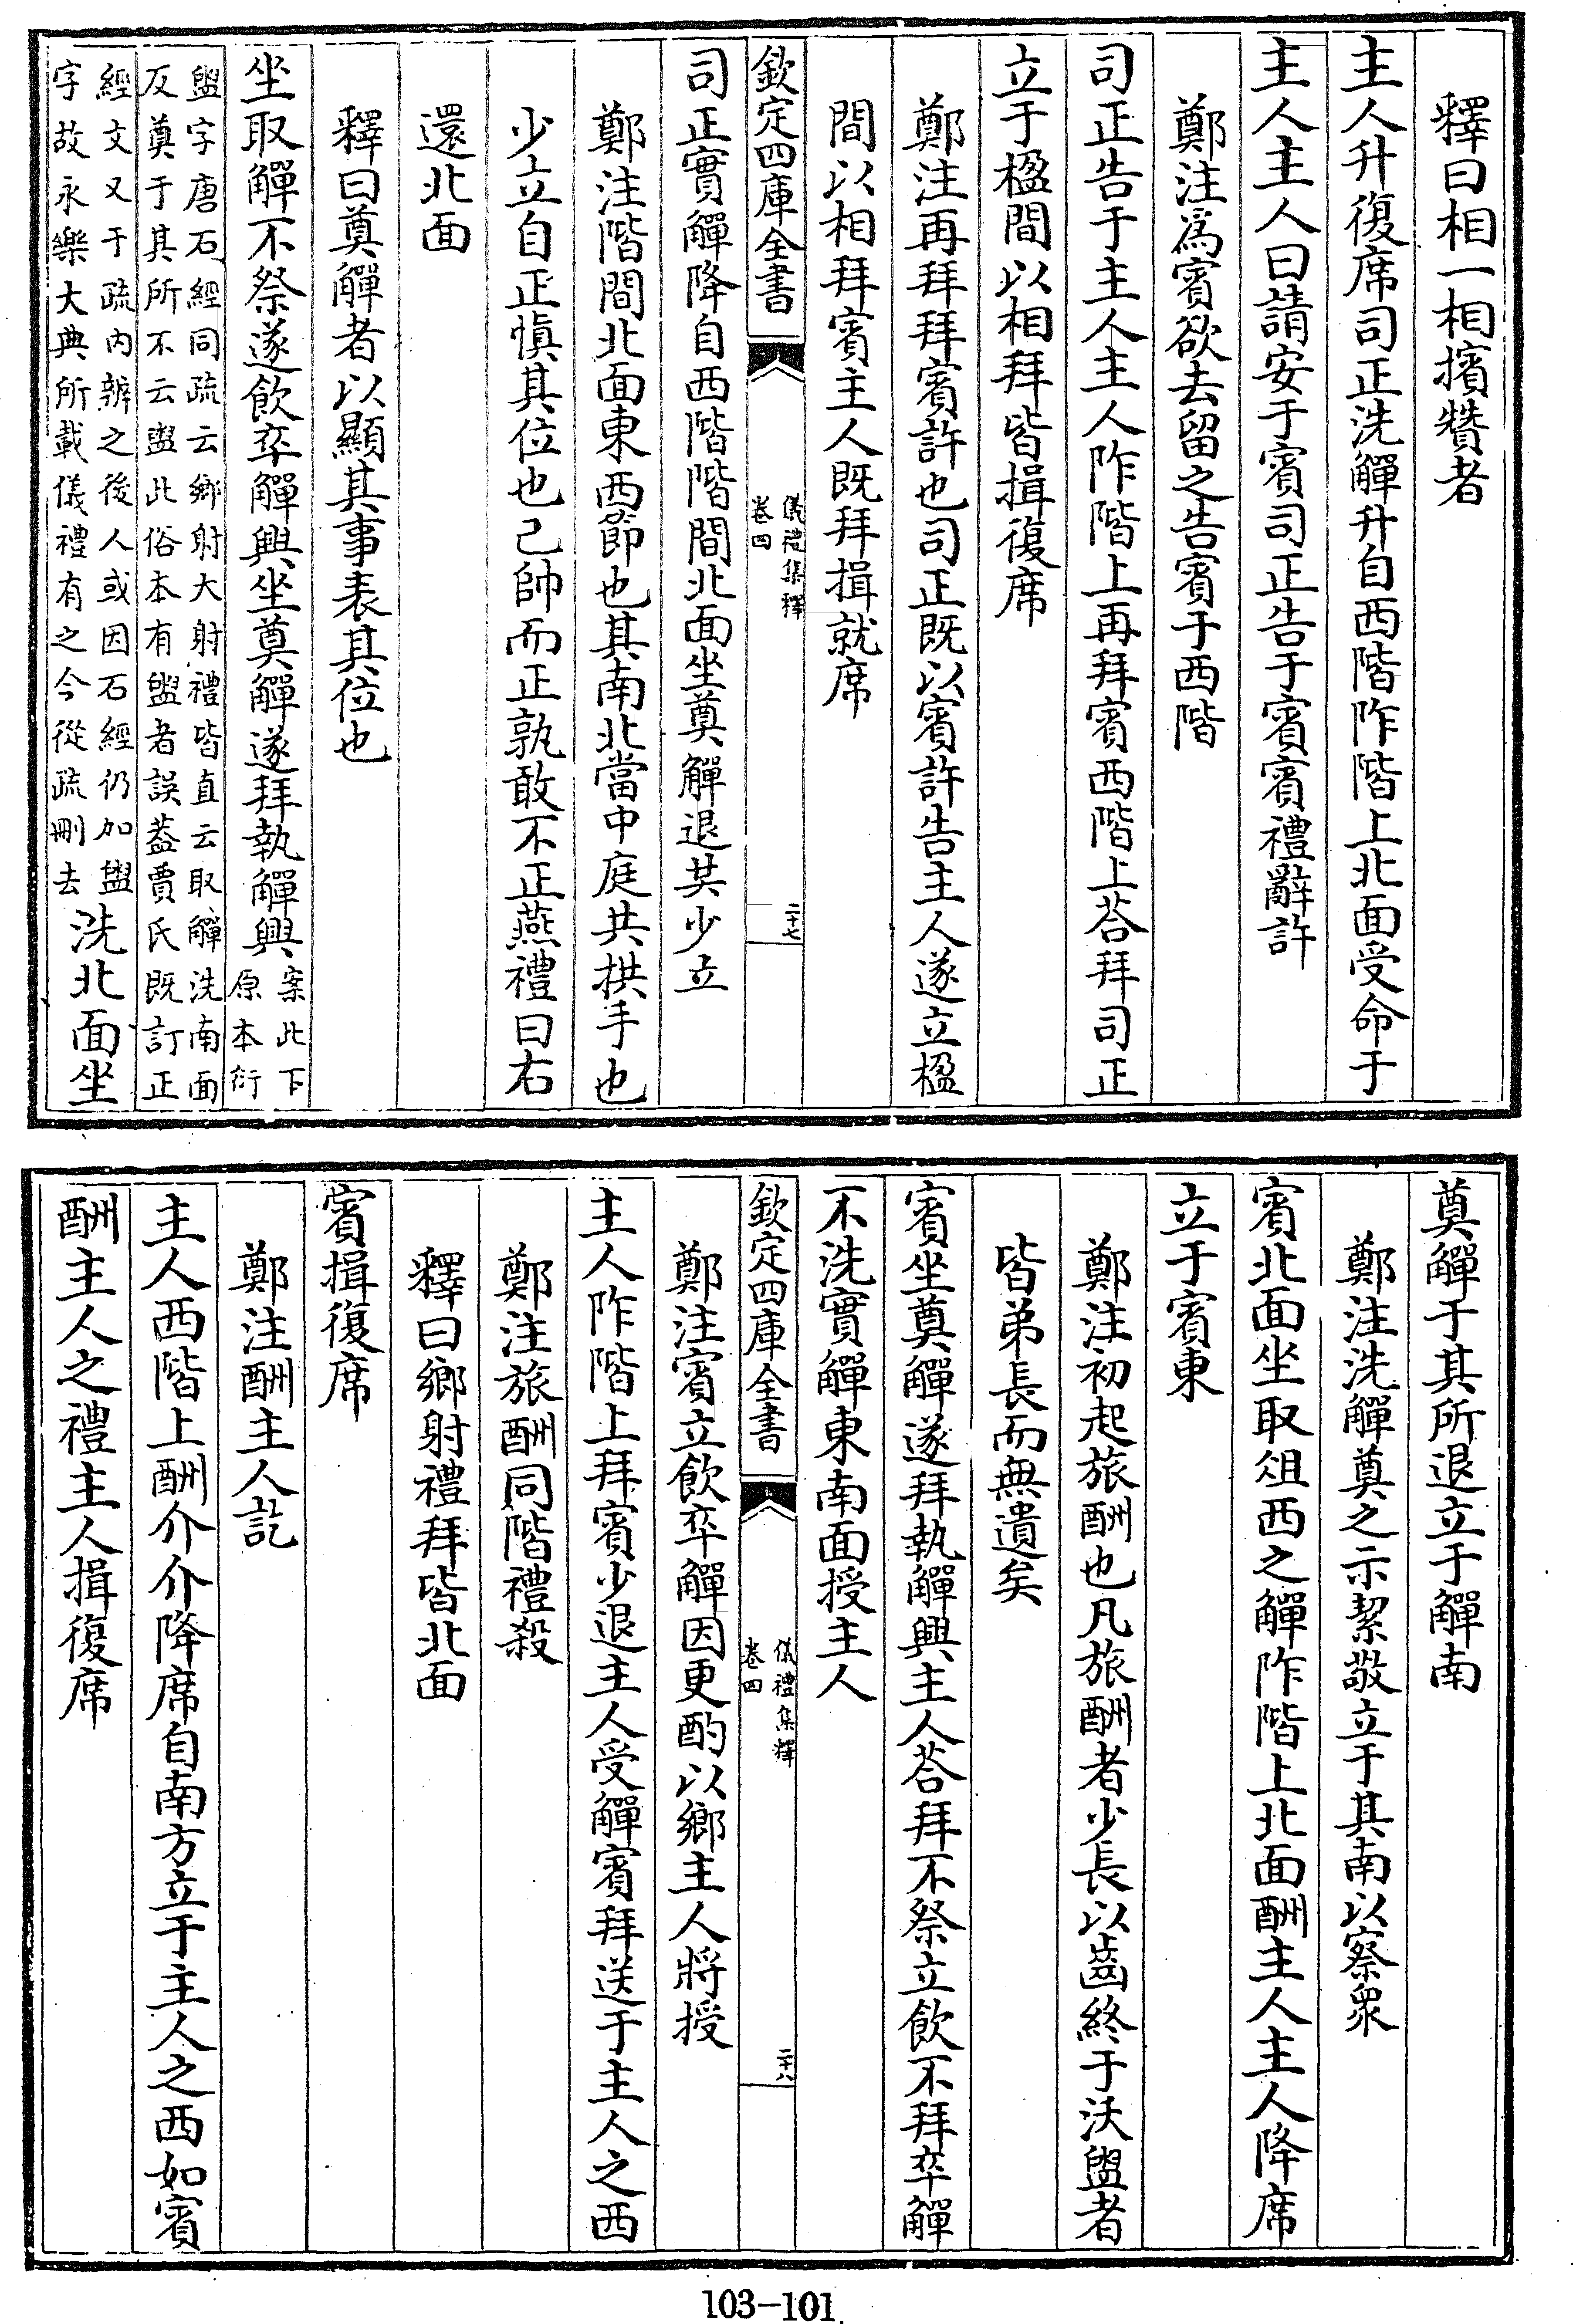 釋曰相一相擯贊者
主人升復席司正洗觶升自西階阼階上北面受命于
主人主人曰請安于賓司正告于賓賓禮辭許
鄭注爲賓欲去留之告賓于西階
司正告于主人主人阼階上再拜賓西階上荅拜司正
立于楹間以相拜皆揖復席
鄭注再拜拜賓許也司正既以賓許告主人遂立楹
間以相拜賓主人既拜揖就席
欽定四庫全書
儀禮集釋
卷四
二十七
司正實觶降自西階階間北面坐奠觶退共少立
鄭注階間北面東西節也其南北當中庭共拱手也
少立自正慎其位也己帥而正孰敢不正燕禮曰右
還北面
釋曰奠觶者以顯其事表其位也
坐取觶不祭遂飲卒觶興坐奠觶遂拜執觶興案此下
原本衍
盥字唐石經同疏云鄉射大射禮皆直云取觶洗南面
反奠于其所不云盥此俗本有盥者誤葢賈氏既訂正
經文又于疏内辨之後人或因石經仍加盥
字故永樂大典所載儀禮有之今從疏刪去洗北面坐
奠觶于其所退立于觶南
鄭注洗觶奠之示絜敬立于其南以察衆
賓北面坐取俎西之觶阼階上北面酬主人主人降席
立于賓東
鄭注初起旅酬也凡旅酬者少長以齒終于沃盥者
皆弟長而無遺矣
賓坐奠觶遂拜執觶興主人荅拜不祭立飲不拜卒觶
不洗實觶東南面授主人
欽定四庫全書
儀禮集釋
卷四
二十八
鄭注賓立飲卒觶因更酌以鄉主人將授
主人阼階上拜賓少退主人受觶賓拜送于主人之西
鄭注旅酬同階禮殺
釋曰鄉射禮拜皆北面
賓揖復席
鄭注酬主人訖
主人西階上酬介介降席自南方立于主人之西如賓
酬主人之禮主人揖復席
103-101